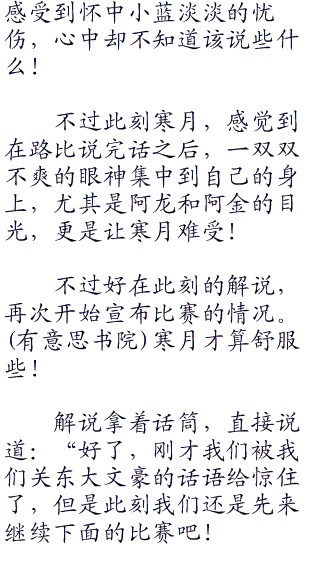 感受到怀中小蓝淡淡的忧
伤，心中却不知道该说些什
么！
不过此刻寒月，感觉到
在路比说完话之后，一双双
不爽的眼神集中到自己的身
上，尤其是阿龙和阿金的目
光，更是让寒月难受！
不过好在此刻的解说，
再次开始宣布比赛的情况。
(有意思书院)寒月才算舒服
些！
解说拿着话筒，直接说
道：“好了，刚才我们被我
们关东大文豪的话语给惊住
了，但是此刻我们还是先来
继续下面的比赛吧！